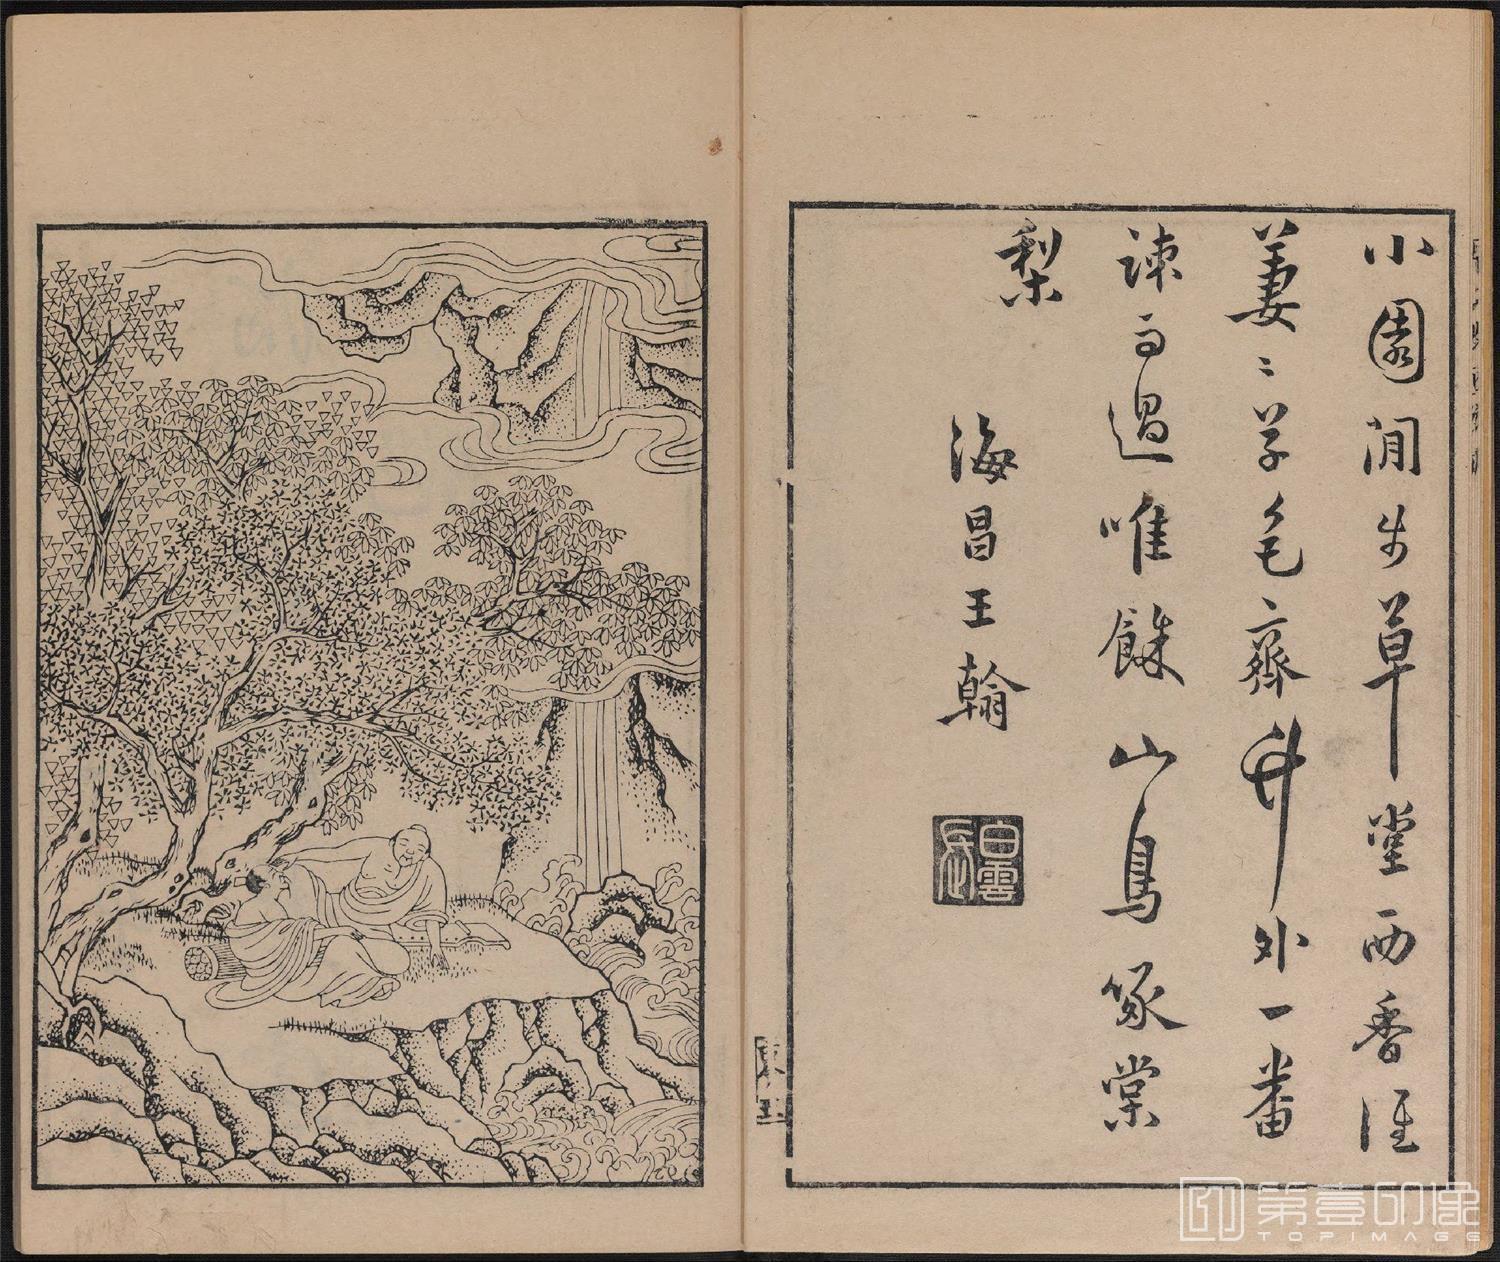 小園閒步草堂西香徑
萋〻草色齊竹外一番
疎雨過唯餘山鳥啄棠
梨
海昌王翰
白雲
第壹印像
TOPIMAGE